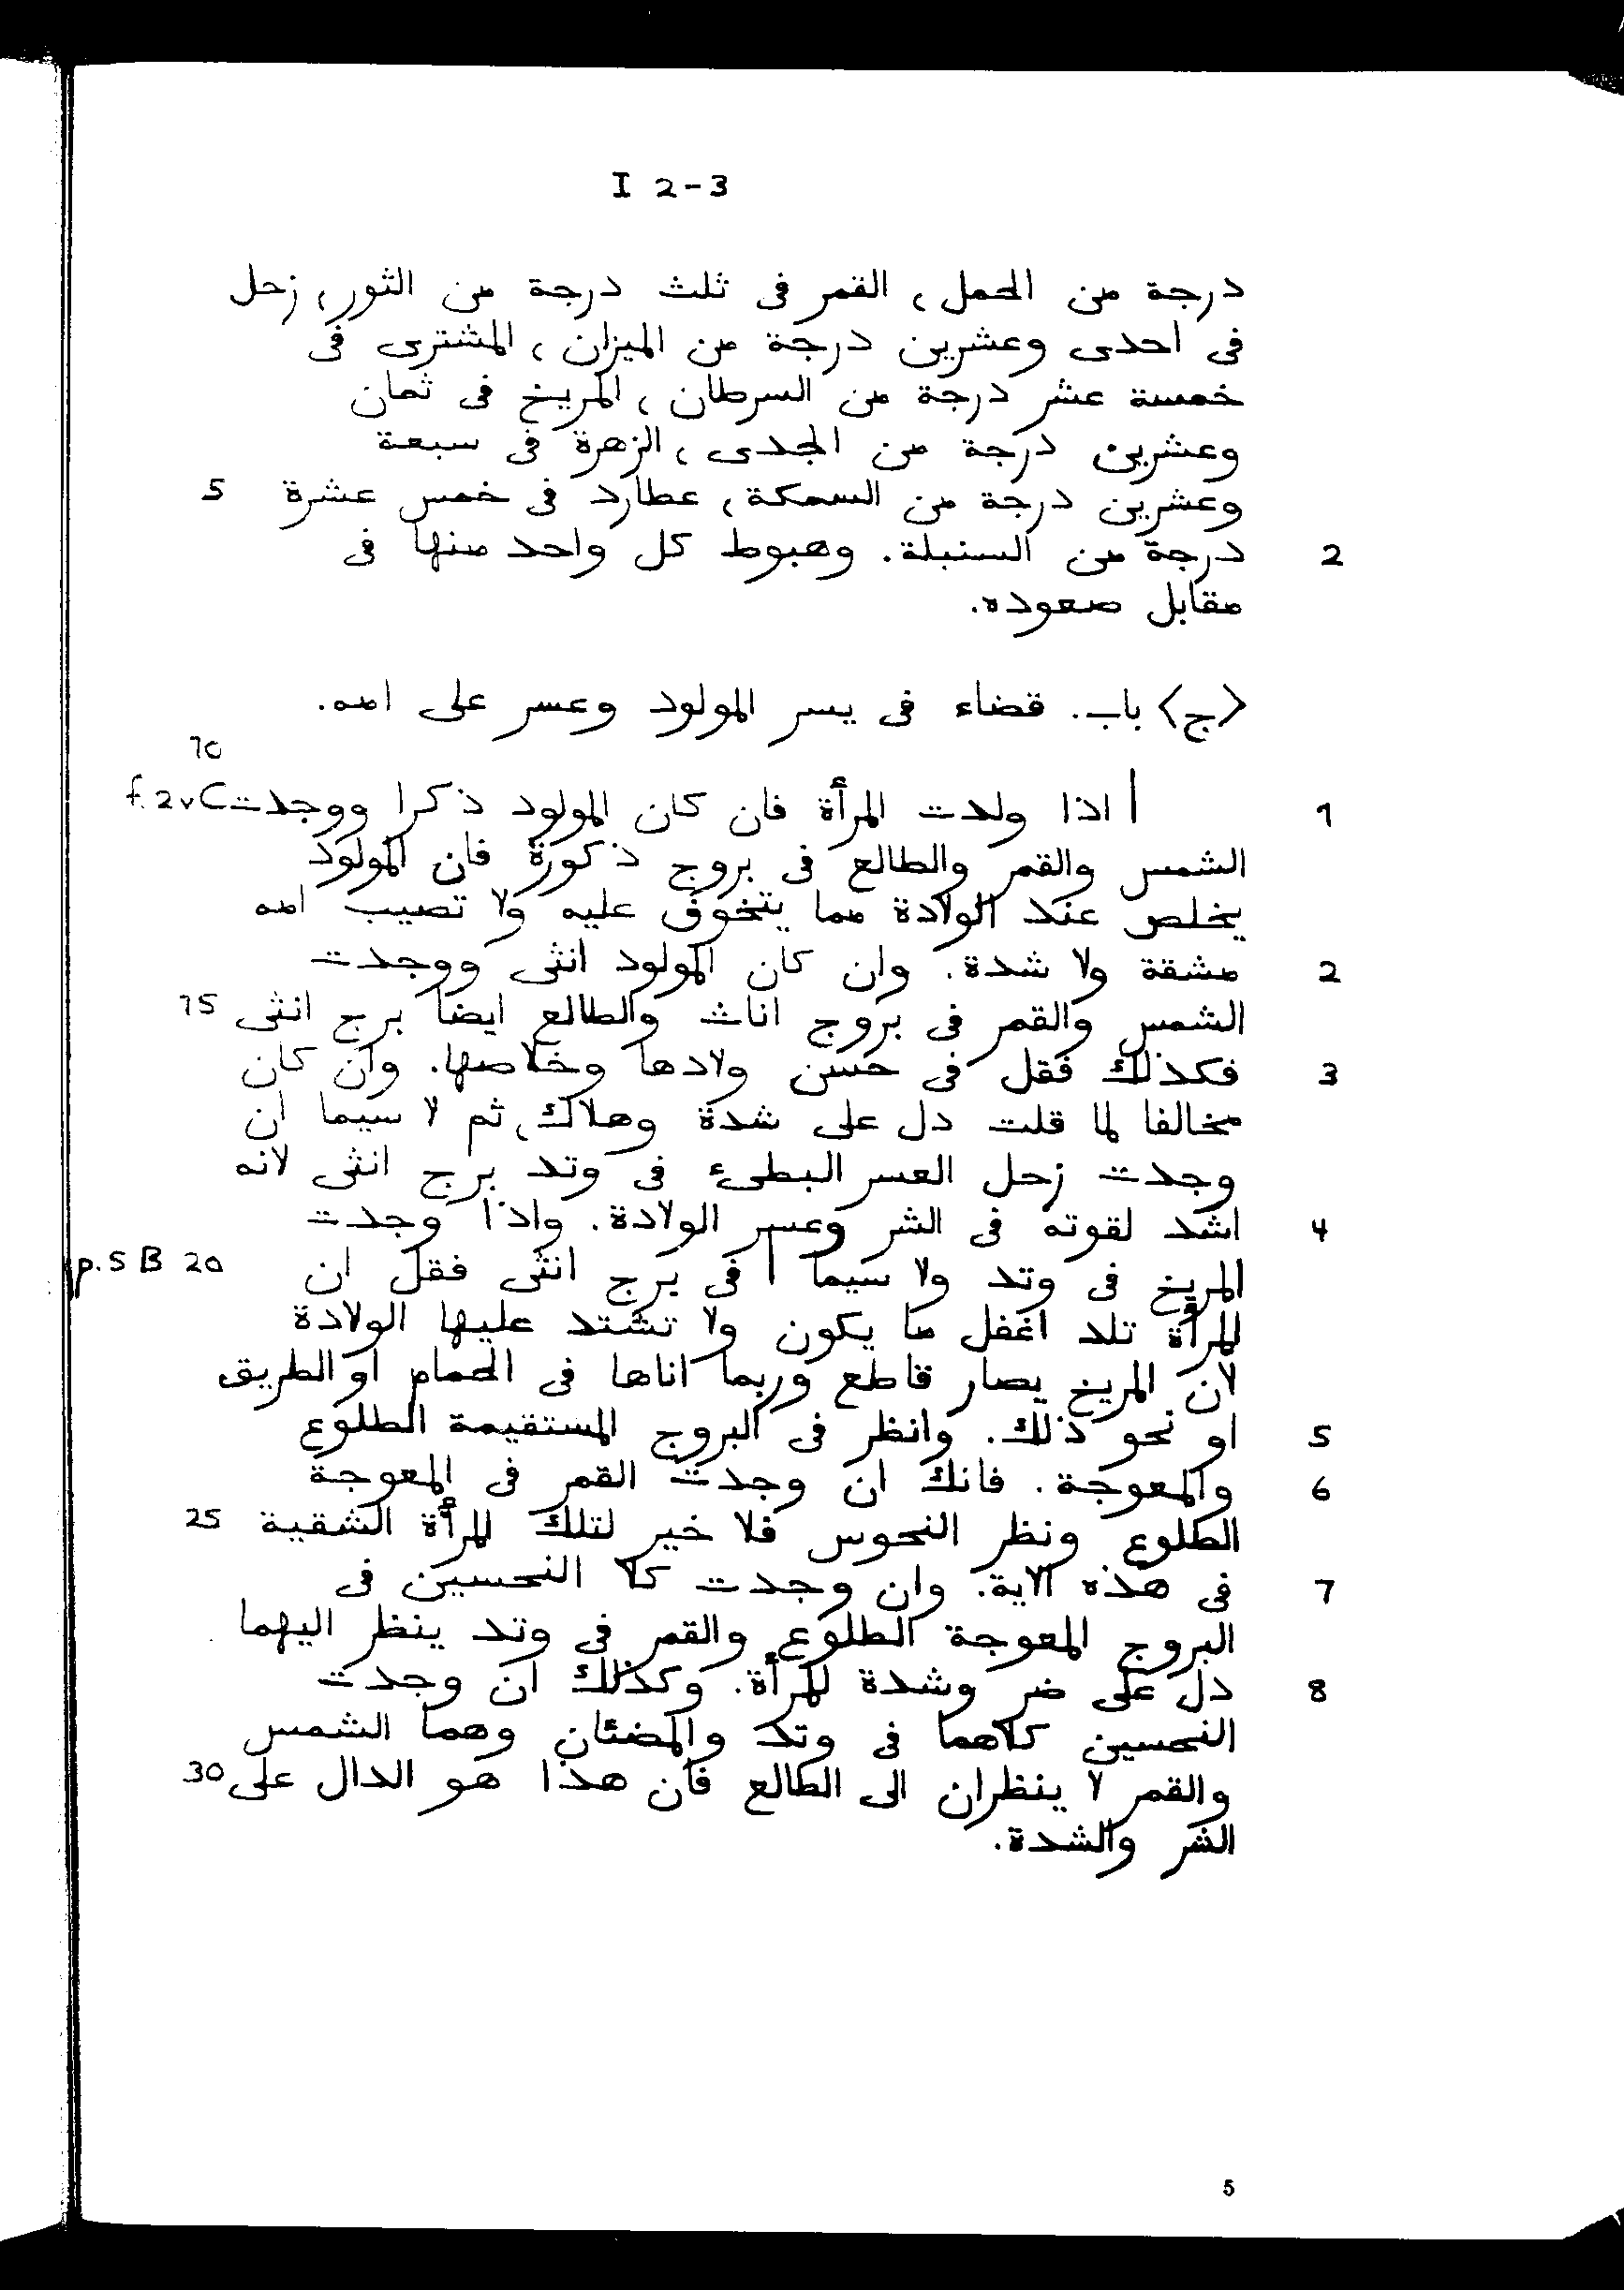 I 2-3
درجة من الحمل، القمر فى ثلث درجة من الثور، زحل
فى احدى وعشرين درجة من الميزان، المشترى فى
خمسة عشر درجة من السرطان، المريخ فى ثمان
وعشرين درجة من الجدى، الزهرة فى سبعة
وعشرين درجة من السمكة، عطارد فى خمس عشرة 5
2 درجة من السنبلة. وهبوط كل واحد منها فى
مقابل صعوده.
<ج> باب. قضاء فى يسر المولود وعسر على امه.
10
1 | اذا ولدت المرأة فان كان المولود ذكرا ووجدت f. 2v C
الشمس والقمر والطالع فى بروج ذكورة فان المولود
يخلص عند الولادة مما يتخوف عليه ولا تصيب امه
2 مشقة ولا شدة. وان كان المولود انثى ووجدت
الشمس والقمر فى بروج اناث والطالع ايضا برج انثى 15
3 فكذلك فقل فى حسن ولادها وخلاصها. وان كان
مخالفا لما قلت دل على شدة وهلاك، ثم لا سيما ان
وجدت زحل العسر البطىء فى وتد برج انثى لانه
4 اشد لقوته فى الشر وعسر الولادة. واذا وجدت
المريخ فى وتد ولا سيما | فى برج انثى فقل ان p. 5 B 20
المرأة تلد اغفل ما يكون ولا تشتد عليها الولادة
لان المريخ يصار قاطع وربما اتاها فى الحمام او الطريق
5 او نحو ذلك. وانظر فى البروج المستقيمة الطلوع
6 والمعوجة. فانك ان وجدت القمر فى المعوجة
الطلوع ونظر النحوس فلا خير لتلك المرأة الشقية 25
7 فى هذه الاية. وان وجدت كلا النحسين فى
البروج المعوجة الطلوع والقمر فى وتد ينظر اليهما
8 دل على ضر وشدة للمرأة. وكذلك ان وجدت
النحسين كلاهما فى وتد والمضئان وهما الشمس
والقمر لا ينظران الى الطالع فان هذا هو الدال على 30
الشر والشدة.
5